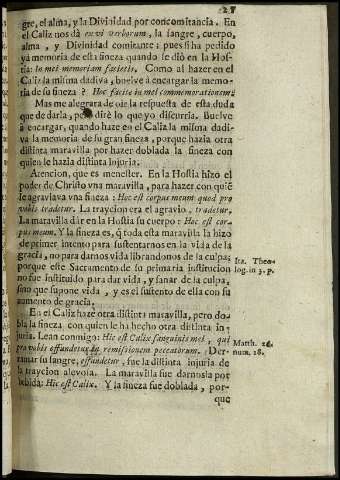 27
gre, el alma, y la Divinidad por concomitancia. En
el Caliz nos dà ex vi verborum, la sangre, cuerpo,
alma, y Divinidad comitante: pues si ha pedido
ya memoria de esta fineza quando se diò en la Hos-
tia: In mei memoriam facietis. Como al hazer en el
Caliz la misma dadiva, buelve à encargar la memo-
ria de su fineza? Hoc facite in mei commemorationem:
Mas me alegrara de oir la respuesta de esta duda
que de darla, però dirè lo que yo discurria. Buelve
à encargar, quando haze en el Caliz la misma dadi-
va la memoria de su gran fineza, porque hazia otra
distinta maravilla por hazer doblada la fineza con
quien le hazia distinta injuria.
Atencion, que es menester. En la Hostia hizo el
poder de Christo vna maravilla, para hazer con quiē
se agraviava vna fineza: Hoc est corpus meum quod pro
vobis tradetur. La traycion era el agravio, tradetur.
La maravilla dàr en la Hostia su cuerpo: Hoc est cor-
pus meum. Y la fineza es, q̃ toda esta maravilla la hizo
de primer intento para sustentarnos en la vida de la
gracia, no para darnos vida librandonos de la culpa;
porque este Sacramento de su primaria institucion
no fue instituido para dar vida, y sanar de la culpa,
sino que supone vida, y es el sustento de ella con su
aumento de gracia.
Ita. Theo-
log. in 3. p.
En el Caliz haze otra distinta maravilla, pero do-
bla la fineza con quien le ha hecho otra distinta in-
juria. Lean conmigo: Hic est Calix sanguinis mei, qui
pro vobis effundetur in remissionem peccatorum. Der-
ramar su sangre, effundetur, fue la distinta injuria de
la traycion alevosa. La maravilla fue darnosla por
bebida: Hic est Calix. Y la fineza fue doblada, por-
Matth. 26.
num. 28.
que